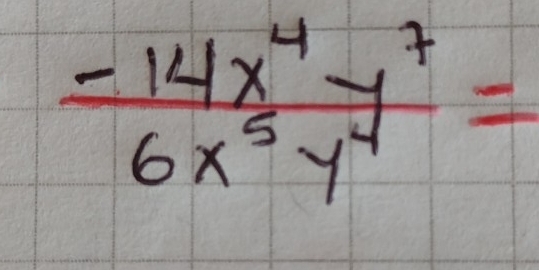 -14x⁴ y⁷ =
6x⁵ y⁴